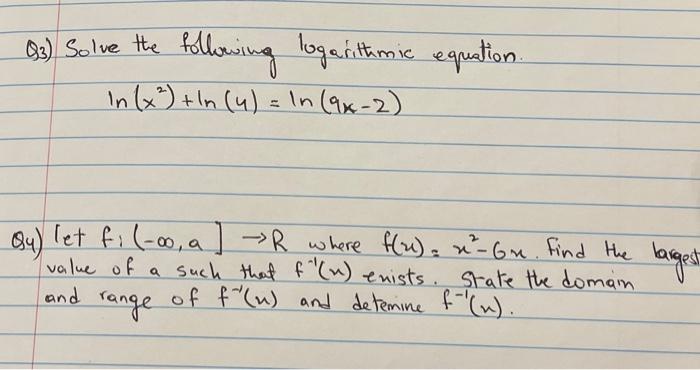 Q3) Solve the following logarithmic equation.
ln(x²) + ln(4) = ln(9x-2)
Q4) let f: (-∞, a] → R where f(x) = x²-6x. Find the largest
value of a such that f⁻¹(x) exists. State the domain
and range of f⁻¹(x) and detemine f⁻¹(x).